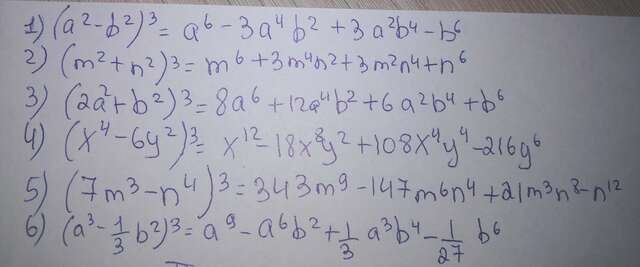 1) (a²-b²)³= a⁶ - 3a⁴b² + 3a²b⁴ - b⁶
2) (m²+n²)³= m⁶+3m⁴n²+3m²n⁴+n⁶
3) (2a²+b²)³= 8a⁶+12a⁴b²+6a²b⁴+b⁶
4) (x⁴-6y²)³= x¹²-18x⁸y²+108x⁴y⁴-216y⁶
5) (7m³-n⁴)³=343m⁹-147m⁶n⁴+21m³n⁸-n¹²
6) (a³-1/3b²)³= a⁹-a⁶b²+1/3a³b⁴-1/27b⁶